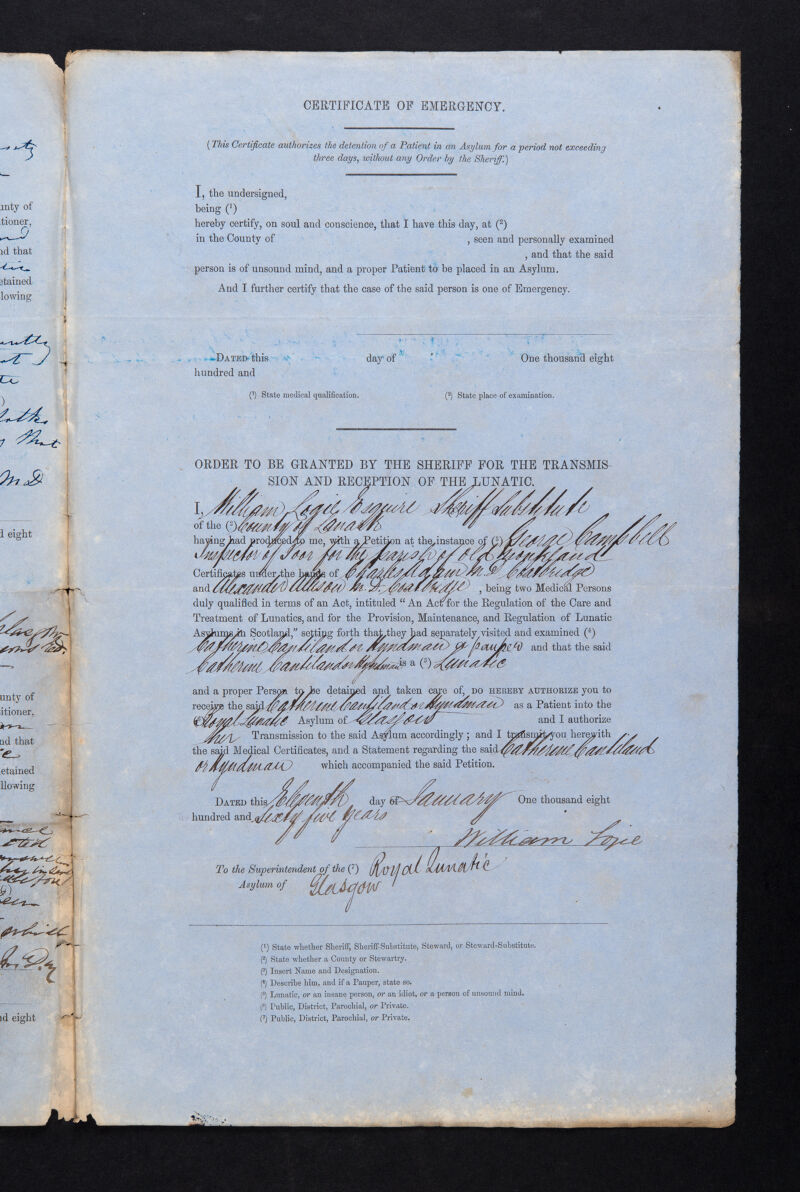 CERTIFICATE OF EMERGENCY.
(This Certificate authorizes the detention of a Patient in an Asylum for a period not exceeding
three days, without any Order by the Sheriff.)
I, the undersigned,
being (¹)
hereby certify, on soul and conscience, that I have this day, at (²)
in the County of , seen and personally examined
, and that the said
person is of unsound mind, and a proper Patient to be placed in an Asylum.
And I further certify that the case of the said person is one of Emergency.
DATED this day of One thousand eight
hundred and
(¹) State medical qualification. (²) State place of examination.
ORDER TO BE GRANTED BY THE SHERIFF FOR THE TRANSMIS-
SION AND RECEPTION OF THE LUNATIC.
I, William Logie Esquire Sheriff Substitute
of the (²) County of Lanark
having had produced to me, with a Petition at the instance of (³) George Campbell
Inspector of Poor for the parish of Old Monkland
Certificates under the hands of Charles Adam M.D. Coatbridge
and Alexander Allison M.D. Coatbridge , being two Medical Persons
duly qualified in terms of an Act, intituled “ An Act for the Regulation of the Care and
Treatment of Lunatics, and for the Provision, Maintenance, and Regulation of Lunatic
Asylums in Scotland,” setting forth that they had separately visited and examined (⁴)
Catherine Cantiland or Hyndman a pauper and that the said
Catherine Cantiland or Hyndman is a (⁵) Lunatic
and a proper Person to be detained and taken care of, DO HEREBY AUTHORIZE you to
receive the said Catherine Cantiland or Hyndman as a Patient into the
Royal Lunatic Asylum of Glasgow and I authorize
her Transmission to the said Asylum accordingly ; and I transmit you herewith
the said Medical Certificates, and a Statement regarding the said Catherine Cantiland
or Hyndman which accompanied the said Petition.
DATED this Eleventh day of January One thousand eight
hundred and Sixty five years
William Logie
To the Superintendent of the (⁷) Royal Lunatic
Asylum of Glasgow
(¹) State whether Sheriff, Sheriff-Substitute, Steward, or Steward-Substitute.
(²) State whether a County or Stewartry.
(³) Insert Name and Designation.
(⁴) Describe him, and if a Pauper, state so.
(⁵) Lunatic, or an insane person, or an idiot, or a person of unsound mind.
(⁶) Public, District, Parochial, or Private.
(⁷) Public, District, Parochial, or Private.
unty of
tioner,
nd that
etained
lowing
that
M.D
d eight
unty of
itioner,
nd that
etained
llowing
d eight